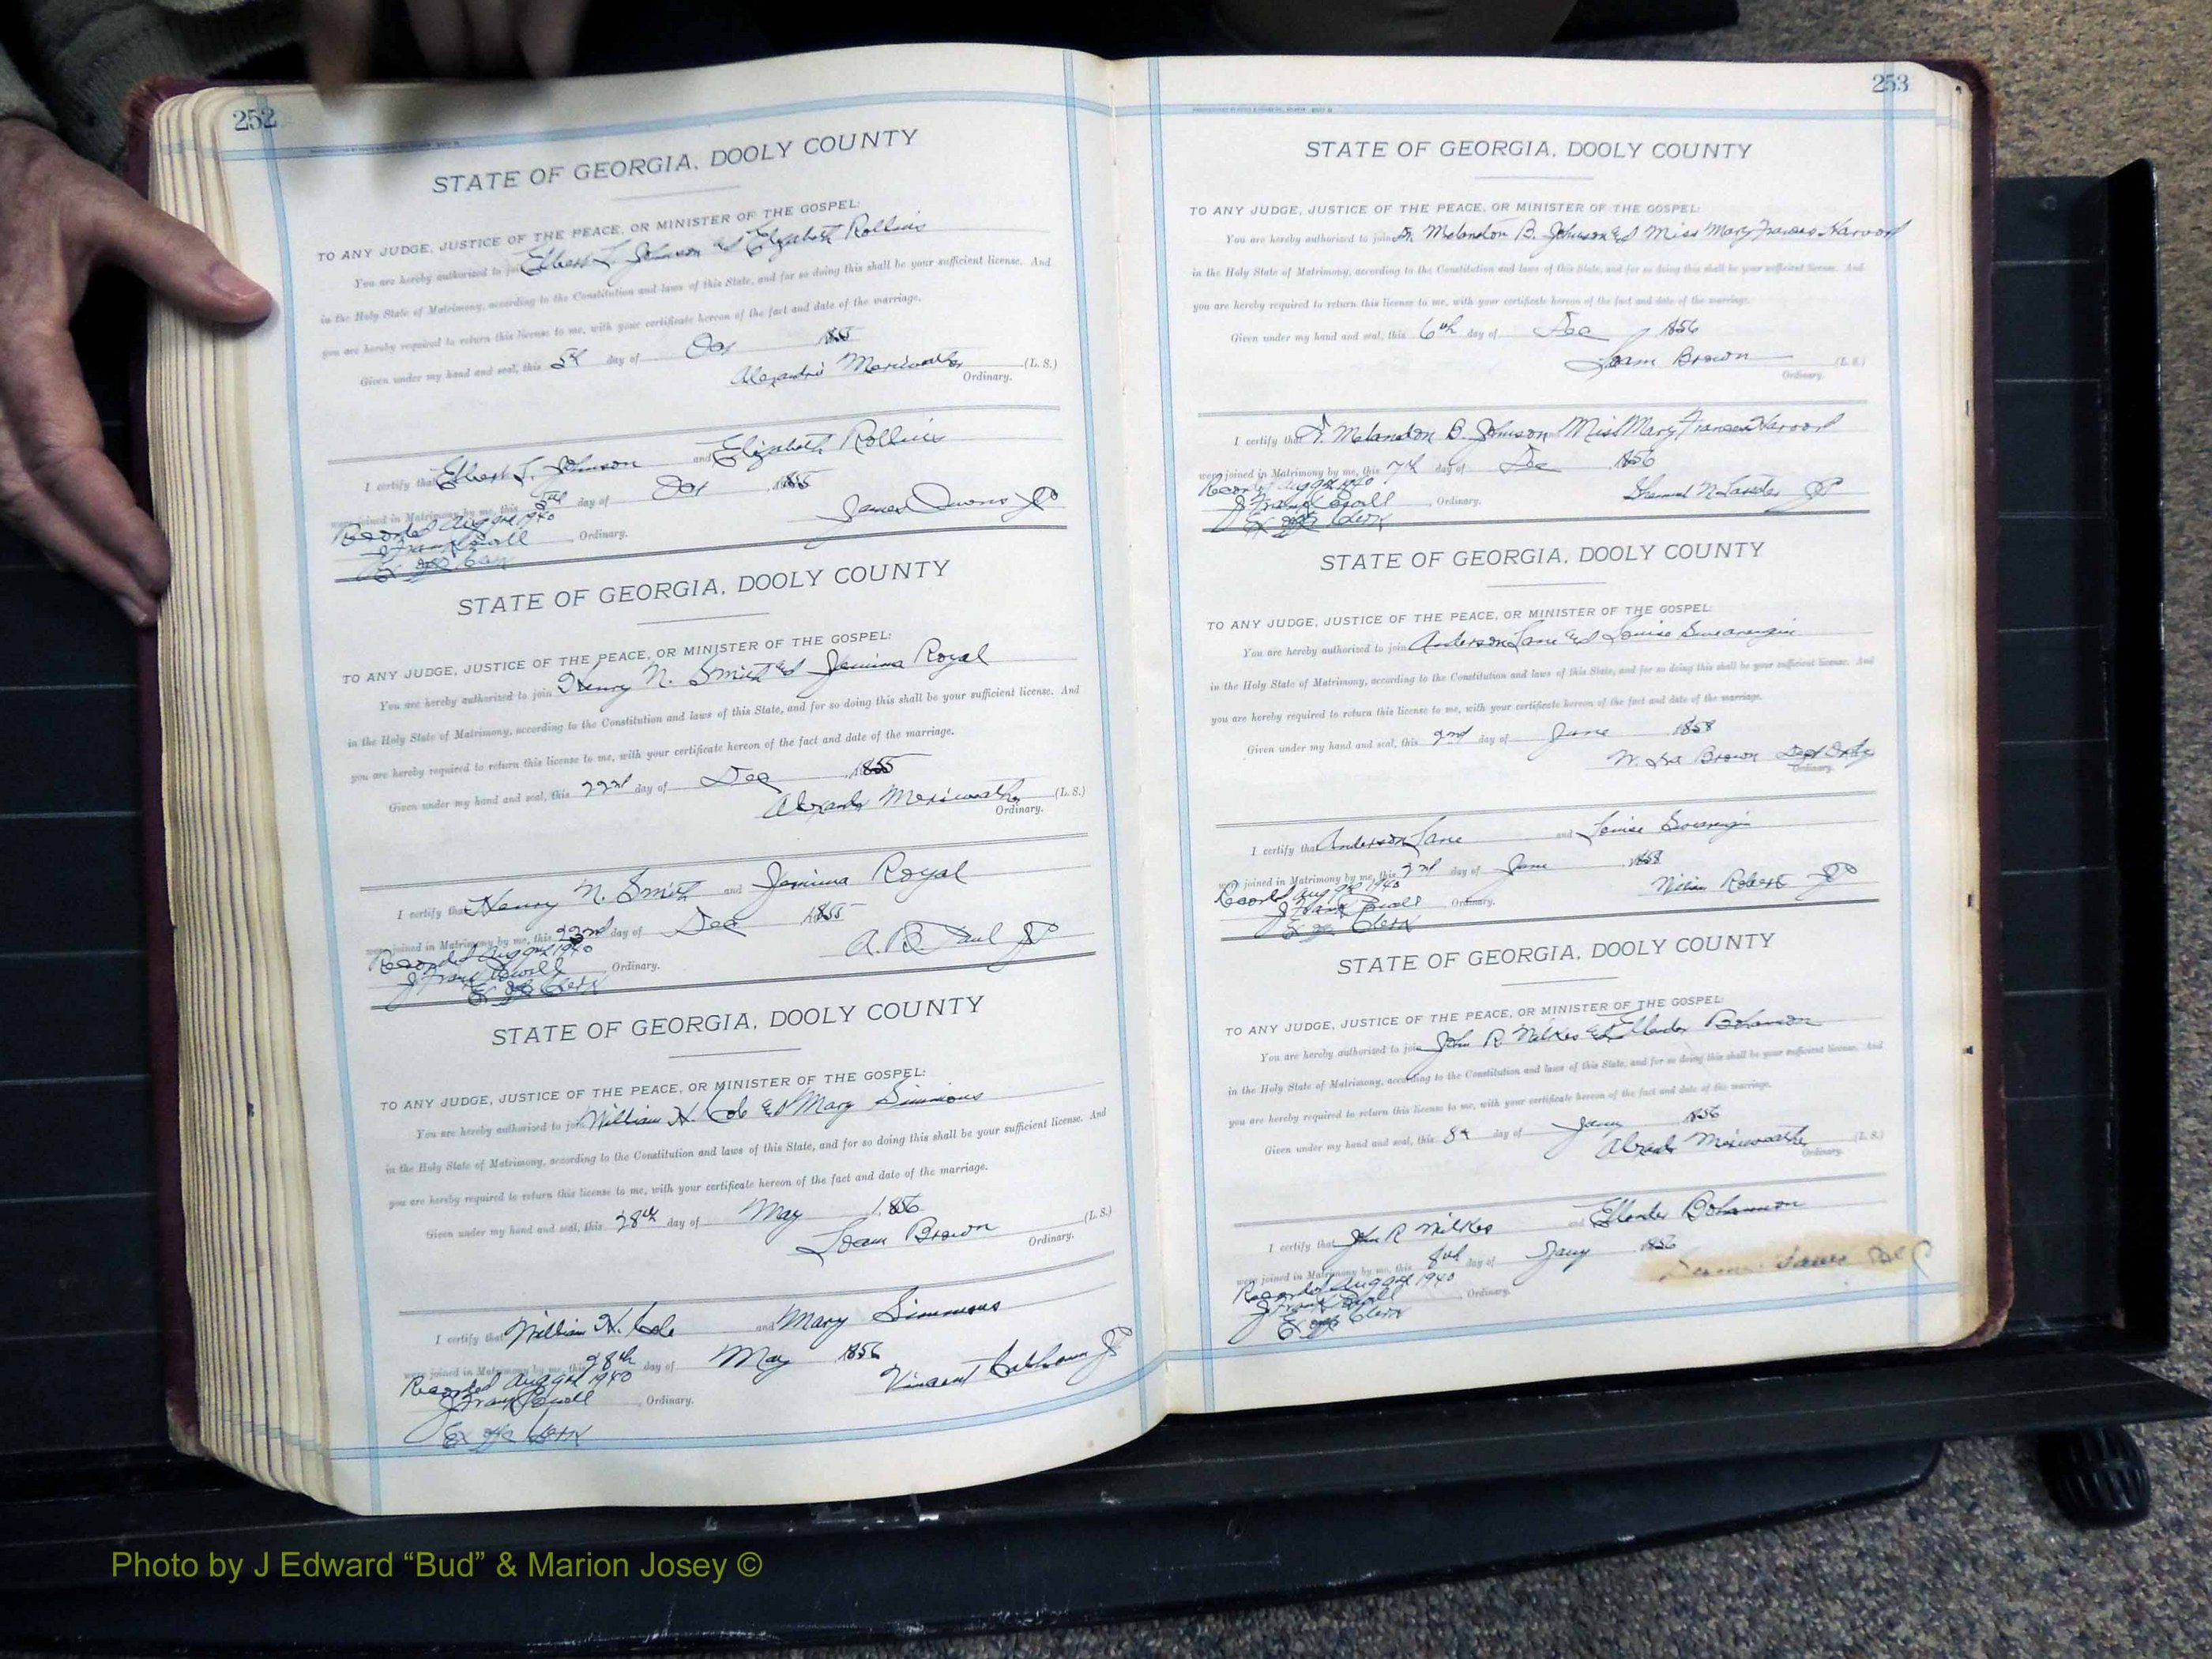 252
STATE OF GEORGIA, DOOLY COUNTY
TO ANY JUDGE, JUSTICE OF THE PEACE, OR MINISTER OF THE GOSPEL:
You are hereby authorized to join Elbert L. Johnson and Elizabeth Rollins
in the Holy State of Matrimony, according to the Constitution and laws of this State, and for so doing this shall be your sufficient license. And
you are hereby required to return this license to me, with your certificate hereon of the fact and date of the marriage.
Given under my hand and seal, this 5th day of Oct 1855
Meriweather (L. S.)
Ordinary.
I certify that Elbert L. Johnson and Elizabeth Rollins
were joined in Matrimony by me, this 5th day of Oct 1855
James Owens JP
Recorded Aug 1940
J Frank Powell, Ordinary.
Ex off Clerk
STATE OF GEORGIA, DOOLY COUNTY
TO ANY JUDGE, JUSTICE OF THE PEACE, OR MINISTER OF THE GOSPEL:
You are hereby authorized to join Henry N. Smith and Jemima Royal
in the Holy State of Matrimony, according to the Constitution and laws of this State, and for so doing this shall be your sufficient license. And
you are hereby required to return this license to me, with your certificate hereon of the fact and date of the marriage.
Given under my hand and seal, this 22nd day of Dec 1855
Meriweather (L. S.)
Ordinary.
I certify that Henry N. Smith and Jemima Royal
were joined in Matrimony by me, this day of Dec 1855
A. B. Paul JP
Recorded Aug 1940
J Frank Powell, Ordinary.
Ex off Clerk
STATE OF GEORGIA, DOOLY COUNTY
TO ANY JUDGE, JUSTICE OF THE PEACE, OR MINISTER OF THE GOSPEL:
You are hereby authorized to join William H. Cole and Mary Simmons
in the Holy State of Matrimony, according to the Constitution and laws of this State, and for so doing this shall be your sufficient license. And
you are hereby required to return this license to me, with your certificate hereon of the fact and date of the marriage.
Given under my hand and seal, this 28th day of May 1856
Brown (L. S.)
Ordinary.
I certify that William H. Cole and Mary Simmons
were joined in Matrimony by me, this 28th day of May 1856
Vincent Calhoun JP
Recorded Aug 1940
J Frank Powell, Ordinary.
Ex off Clerk
253
STATE OF GEORGIA, DOOLY COUNTY
TO ANY JUDGE, JUSTICE OF THE PEACE, OR MINISTER OF THE GOSPEL:
You are hereby authorized to join B. Johnson and Miss Mary Frances
in the Holy State of Matrimony, according to the Constitution and laws of this State, and for so doing this shall be your sufficient license. And
you are hereby required to return this license to me, with your certificate hereon of the fact and date of the marriage.
Given under my hand and seal, this 6th day of Dec 1856
Brown (L. S.)
Ordinary.
I certify that B. Johnson Miss Mary Frances
were joined in Matrimony by me, this 7th day of Dec 1856
JP
Recorded Aug 1940
J Frank Powell, Ordinary.
Ex off Clerk
STATE OF GEORGIA, DOOLY COUNTY
TO ANY JUDGE, JUSTICE OF THE PEACE, OR MINISTER OF THE GOSPEL:
You are hereby authorized to join Anderson Lane and Louise Swearengin
in the Holy State of Matrimony, according to the Constitution and laws of this State, and for so doing this shall be your sufficient license. And
you are hereby required to return this license to me, with your certificate hereon of the fact and date of the marriage.
Given under my hand and seal, this 2nd day of 1858
Brown
Ordinary.
I certify that Anderson Lane and Louise
were joined in Matrimony by me, this 2nd day of 1858
JP
Recorded Aug 1940
J Frank Powell, Ordinary.
Ex off Clerk
STATE OF GEORGIA, DOOLY COUNTY
TO ANY JUDGE, JUSTICE OF THE PEACE, OR MINISTER OF THE GOSPEL:
You are hereby authorized to join John R. Wilkes and Ellender Bohannon
in the Holy State of Matrimony, according to the Constitution and laws of this State, and for so doing this shall be your sufficient license. And
you are hereby required to return this license to me, with your certificate hereon of the fact and date of the marriage.
Given under my hand and seal, this 8th day of Jany 1856
Meriweather (L. S.)
Ordinary.
I certify that John R Wilkes and Ellender Bohannon
were joined in Matrimony by me, this 8th day of Jany 1856
Recorded Aug 1940
J Frank Powell, Ordinary.
Ex off Clerk
Photo by J Edward “Bud” & Marion Josey ©